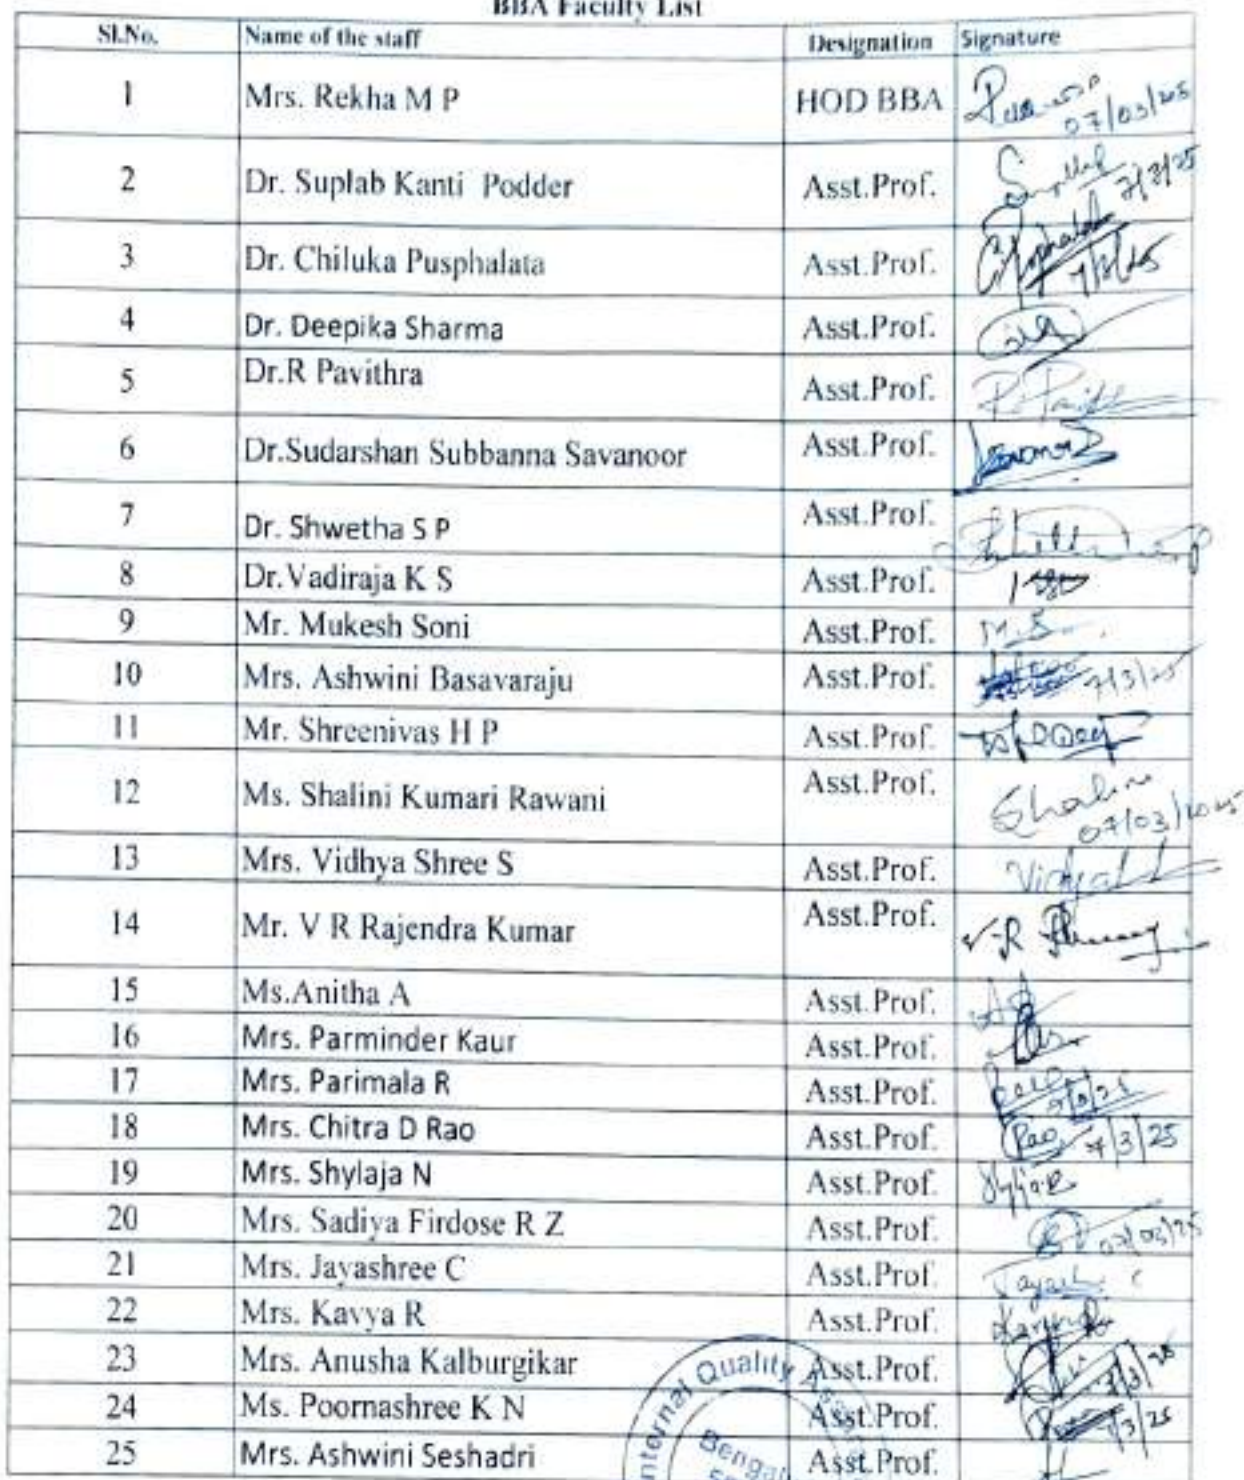 BBA Faculty List
Sl.No. Name of the staff Designation Signature
1 Mrs. Rekha M P HOD BBA
07/03/2025
2 Dr. Suplab Kanti Podder Asst.Prof. 7/3/25
3 Dr. Chiluka Pusphalata Asst.Prof. 7/3/25
4 Dr. Deepika Sharma Asst.Prof.
5 Dr.R Pavithra Asst.Prof.
6 Dr.Sudarshan Subbanna Savanoor Asst.Prof.
7 Dr. Shwetha S P Asst.Prof.
8 Dr.Vadiraja K S Asst.Prof.
9 Mr. Mukesh Soni Asst.Prof. M.S.
10 Mrs. Ashwini Basavaraju Asst.Prof. 7/3/25
11 Mr. Shreenivas H P Asst.Prof.
12 Ms. Shalini Kumari Rawani Asst.Prof. Shalini
07/03/2025
13 Mrs. Vidhya Shree S Asst.Prof.
14 Mr. V R Rajendra Kumar Asst.Prof. V.R
15 Ms.Anitha A Asst.Prof.
16 Mrs. Parminder Kaur Asst.Prof.
17 Mrs. Parimala R Asst.Prof. 7/3/25
18 Mrs. Chitra D Rao Asst.Prof. Rao 7/3/25
19 Mrs. Shylaja N Asst.Prof.
20 Mrs. Sadiya Firdose R Z Asst.Prof. 07/03/25
21 Mrs. Jayashree C Asst.Prof.
22 Mrs. Kavya R Asst.Prof.
23 Mrs. Anusha Kalburgikar Asst.Prof. 7/3/25
24 Ms. Poornashree K N Asst.Prof. 7/3/25
25 Mrs. Ashwini Seshadri Asst.Prof.
Internal Quality